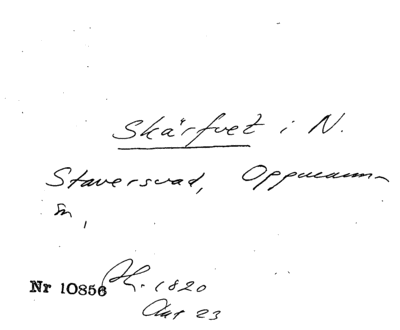 Skärfvet i N.
Staversvad, Oppmanna-
sn,
Nr 10856 Ah. 1820
Akt 23